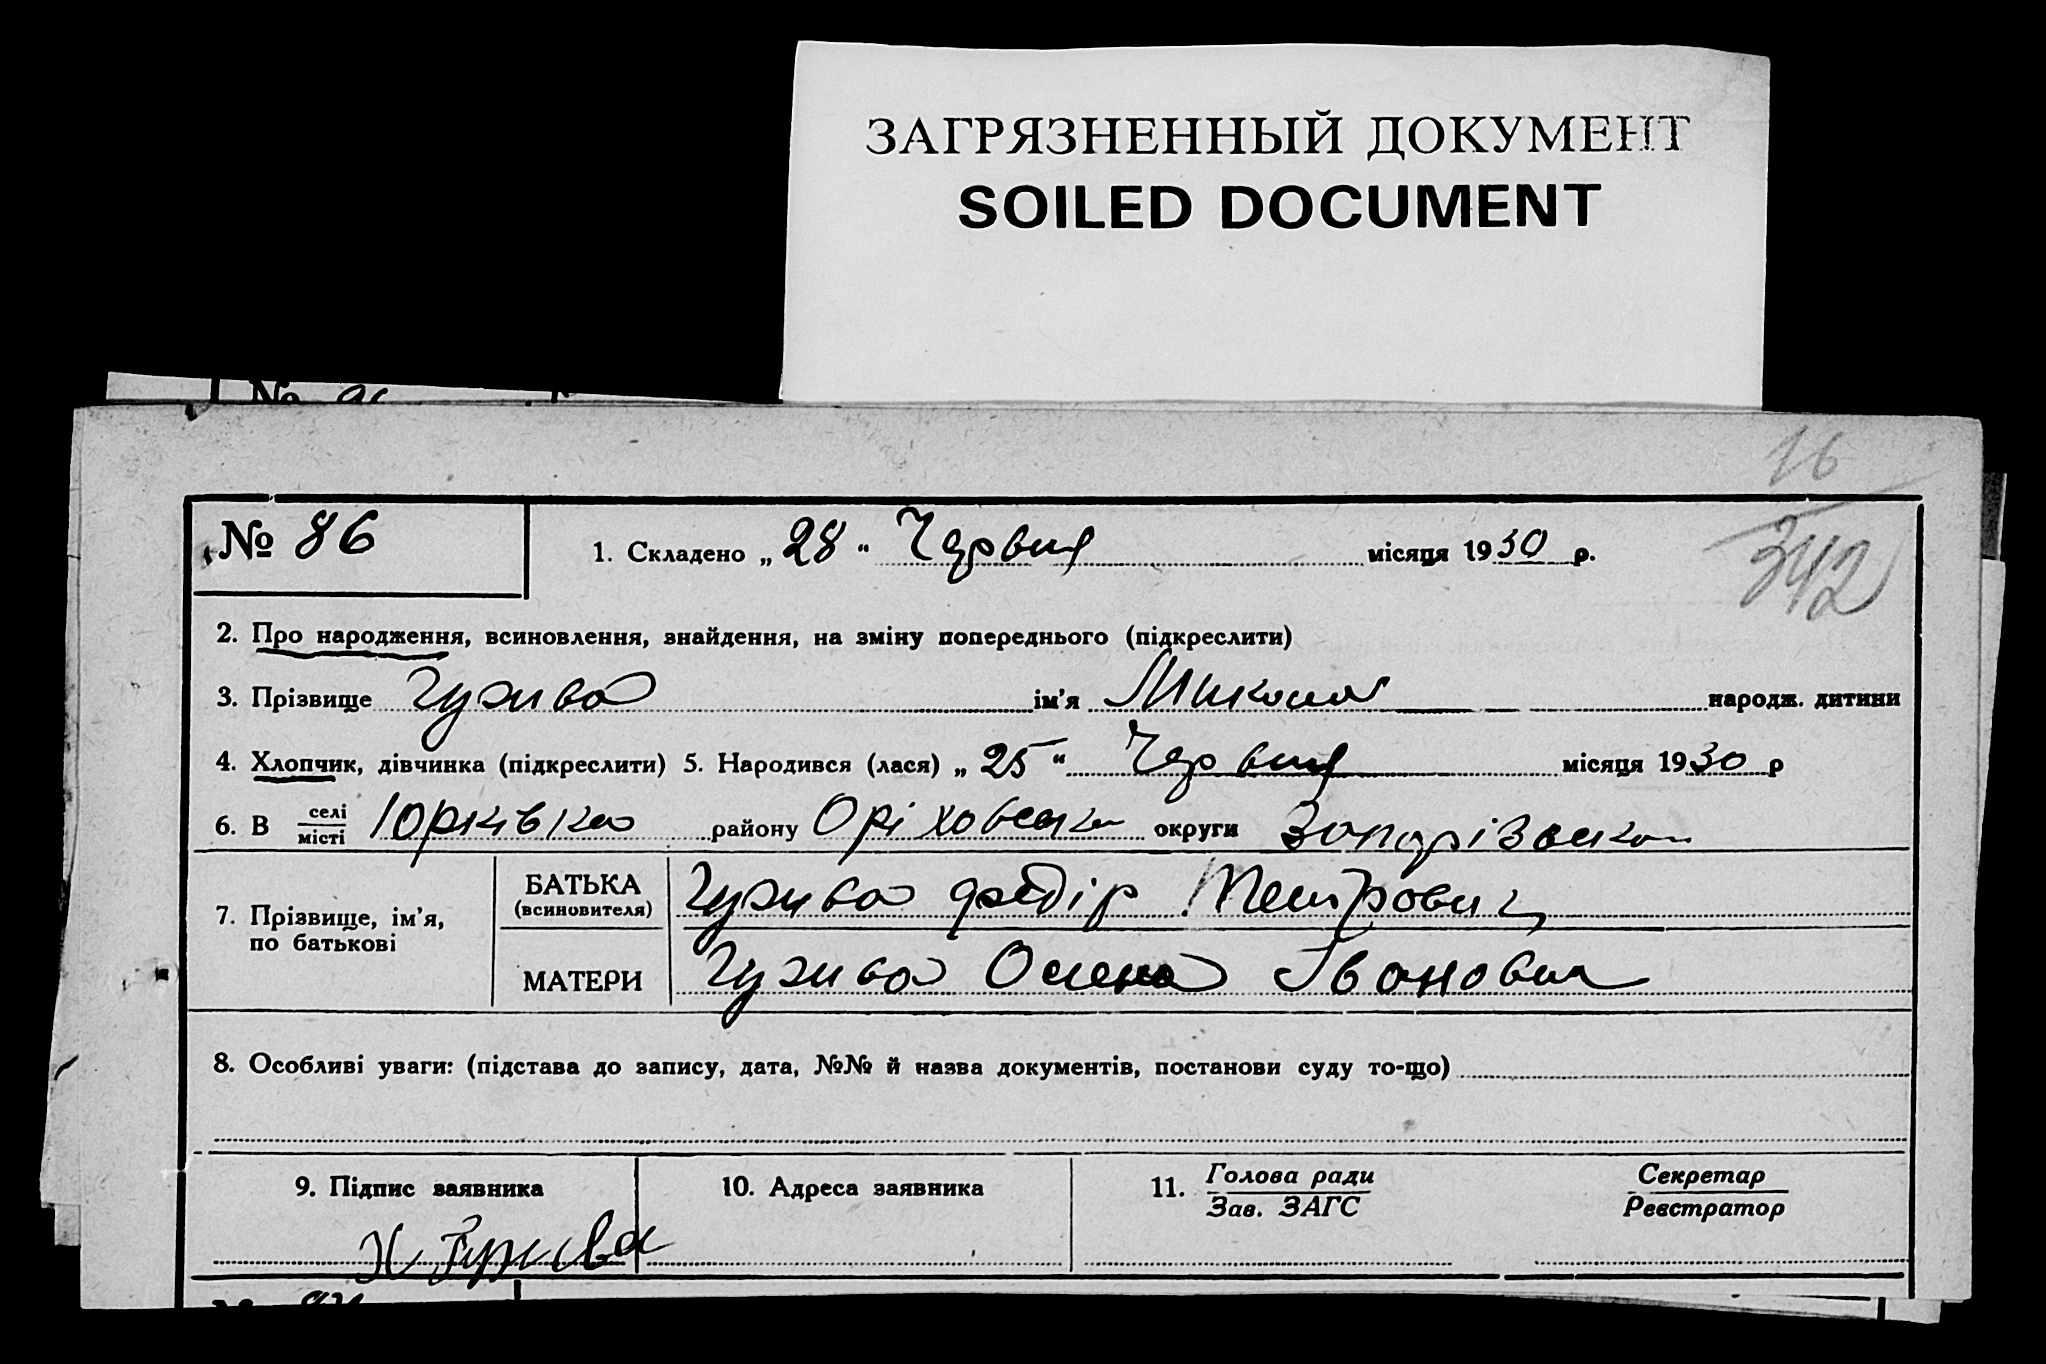 ЗАГРЯЗНЕННЫЙ ДОКУМЕНТ
SOILED DOCUMENT
16
342
№ 86
1. Складено „ 28 “ Червня місяця 1930 р.
2. Про народження, всиновлення, знайдення, на зміну попереднього (підкреслити)
3. Прізвище Гужва ім’я Микола народж. дитини
4. Хлопчик, дівчинка (підкреслити) 5. Народився (лася) „ 25 “ Червня місяця 1930 р
6. В селі місті Юрківка району Оріховська округи Запорізька
7. Прізвище, ім’я, по батькові
БАТЬКА (всиновителя) Гужва Федір Петрович
МАТЕРИ Гужва Олена Івановна
8. Особливі уваги: (підстава до запису, дата, №№ й назва документів, постанови суду то-що)
9. Підпис заявника
10. Адреса заявника
11. Голова ради Зав. ЗАГС
Секретар Реєстратор
Гужва